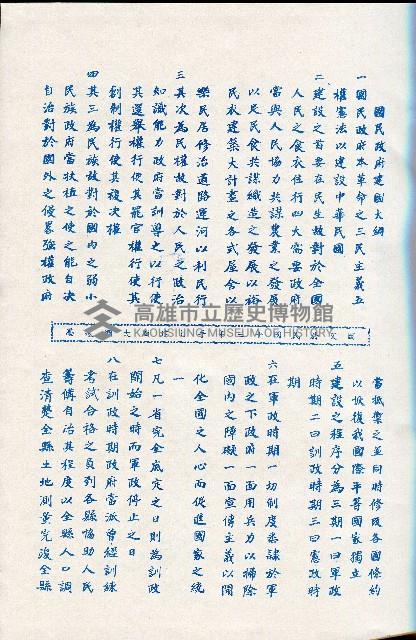 國民政府建國大綱
一國民政府本革命之三民主義五
權憲法以建設中華民國
二建設之首要在民生故對於全國
人民之食衣住行四大需要政府
當與人民協力共謀農業之發展
以足民食共謀織造之發展以裕
民衣建築大計畫之各式屋舍以
樂民居修治道路運河以利民行
三其次為民權故對於人民之政治
知識能力政府當訓導之以行使
其選舉權行使其罷官權行使其
創制權行使其複決權
四其三為民族故對於國內之弱小
民族政府當扶植之使之能自决
自治對於國外之侵畧強權政府
高雄市立歷史博物館
KAOHSIUNG MUSEUM OF HISTORY
當抵禦之並同時修改各國條約
以恢復我國際平等國家獨立
五建設之程序分為三期一曰軍政
時期二曰訓政時期三曰憲政時
期
六在軍政時期一切制度悉隸於軍
政之下政府一面用兵力以掃除
國內之障礙一面宣傳主義以開
化全國之人心而促進國家之統
一
七凡一省完全底定之日則為訓政
開始之時而軍政停止之日
八在訓政時期政府當派曾經訓練
考試合格之員到各縣協助人民
籌備自治其程度以全縣人口調
查清楚全縣土地測量完竣全縣